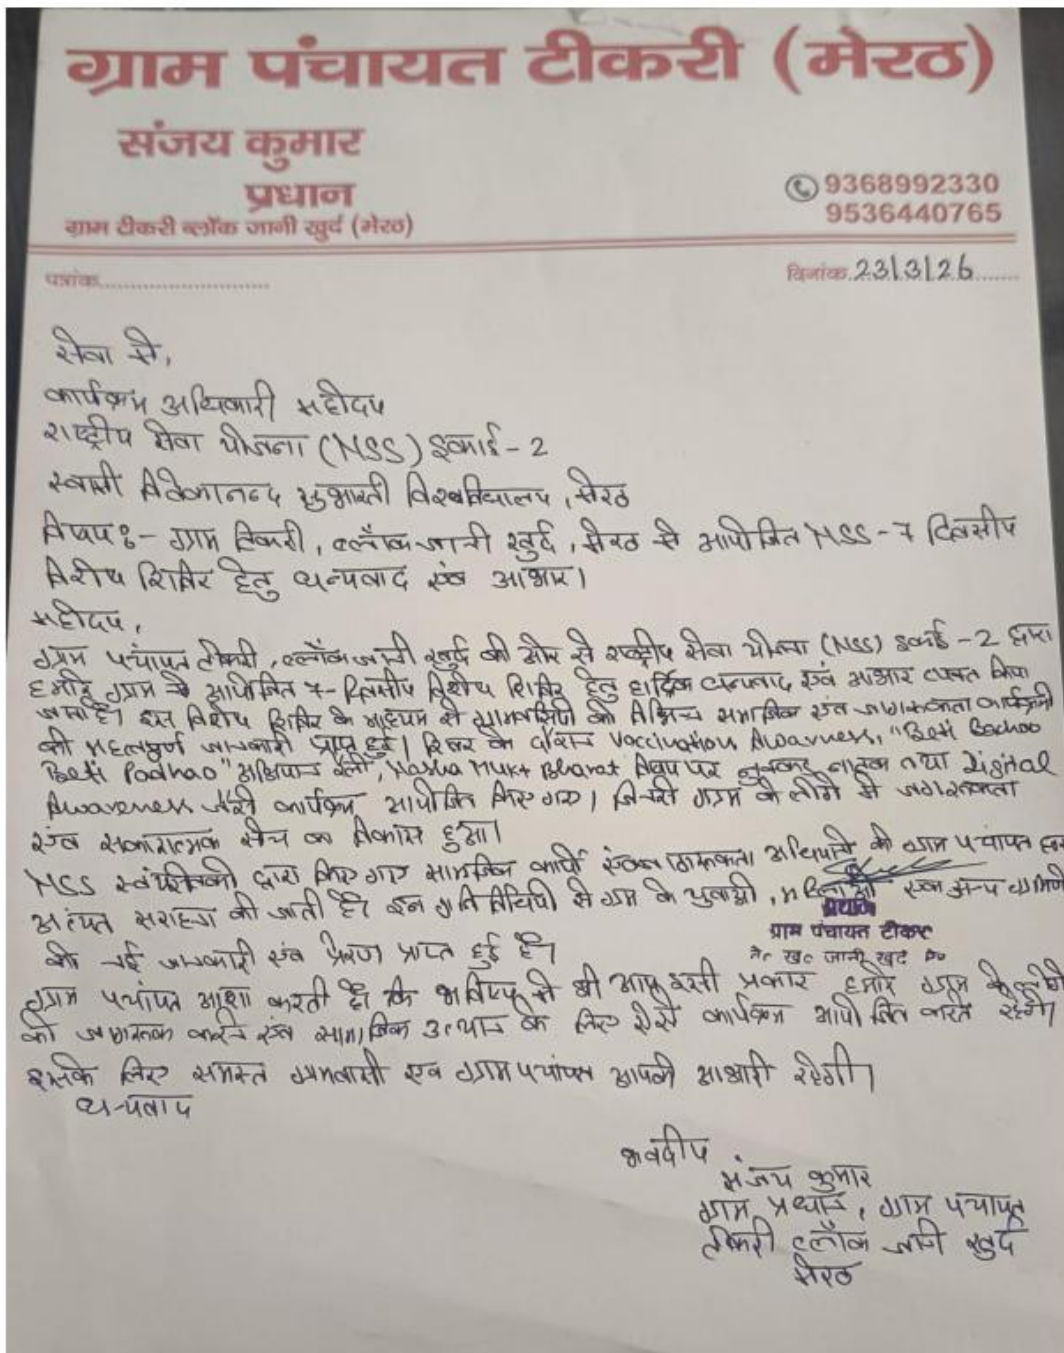 ग्राम पंचायत टीकरी (मेरठ)
संजय कुमार
प्रधान
ग्राम टीकरी ब्लॉक जानी खुर्द (मेरठ)
9368992330
9536440765
पत्रांक..............................
दिनांक.23/3/26.......
सेवा में,
कार्यक्रम अधिकारी महोदय
राष्ट्रीय सेवा योजना (NSS) इकाई - 2
स्वामी विवेकानन्द सुभारती विश्वविद्यालय, मेरठ
विषय:- ग्राम टिकरी, ब्लॉक जानी खुर्द, मेरठ में आयोजित NSS - 7 दिवसीय
विशेष शिविर हेतु धन्यवाद एवं आभार।
महोदय,
ग्राम पंचायत टीकरी, ब्लॉक जानी खुर्द की ओर से राष्ट्रीय सेवा योजना (NSS) इकाई - 2 द्वारा
हमारे ग्राम में आयोजित 7-दिवसीय विशेष शिविर हेतु हार्दिक धन्यवाद एवं आभार व्यक्त किया
जाता है। इस विशेष शिविर के माध्यम से ग्रामवासियों को विभिन्न समाजिक एवं जागरूकता कार्यक्रमों
की महत्वपूर्ण जानकारी प्राप्त हुई। शिवर के दौरान Vaccination Awarness, "Beti Bachao
Beti Padhao" अभियान रैली, Nasha Mukt Bharat विषय पर नुक्कड़ नाटक तथा Digital
Awareness जैसे कार्यक्रम आयोजित किए गए। जिनसे ग्राम के लोगों में जागरूकता
एंव सकारात्मक सोच का विकास हुआ।
NSS स्वंयसेवकों द्वारा किए गए सामाजिक कार्यों एंव जागरूकता अभियानों की ग्राम पंचायत द्वारा
अत्यंत सराहना की जाती है। इन गतिविधियों से ग्राम के युवाओं, महिलाओं एंव अन्य ग्रामीणों
प्रधान
ग्राम पंचायत टीकरी
को नई जानकारी एंव प्रेरणा प्राप्त हुई है।
ग्राम पंचायत आशा करती है कि भविष्य में भी आप इसी प्रकार हमारे ग्राम के लोगों
को जागरूक करने एंव सामाजिक उत्थान के लिए ऐसे कार्यक्रम आयोजित करते रहेंगे।
इसके लिए समस्त ग्रामवासी एवं ग्राम पंचायत आपकी आभारी रहेगी।
धन्यवाद
भवदीय
संजय कुमार
ग्राम प्रधान, ग्राम पंचायत
टीकरी ब्लॉक जानी खुर्द
मेरठ